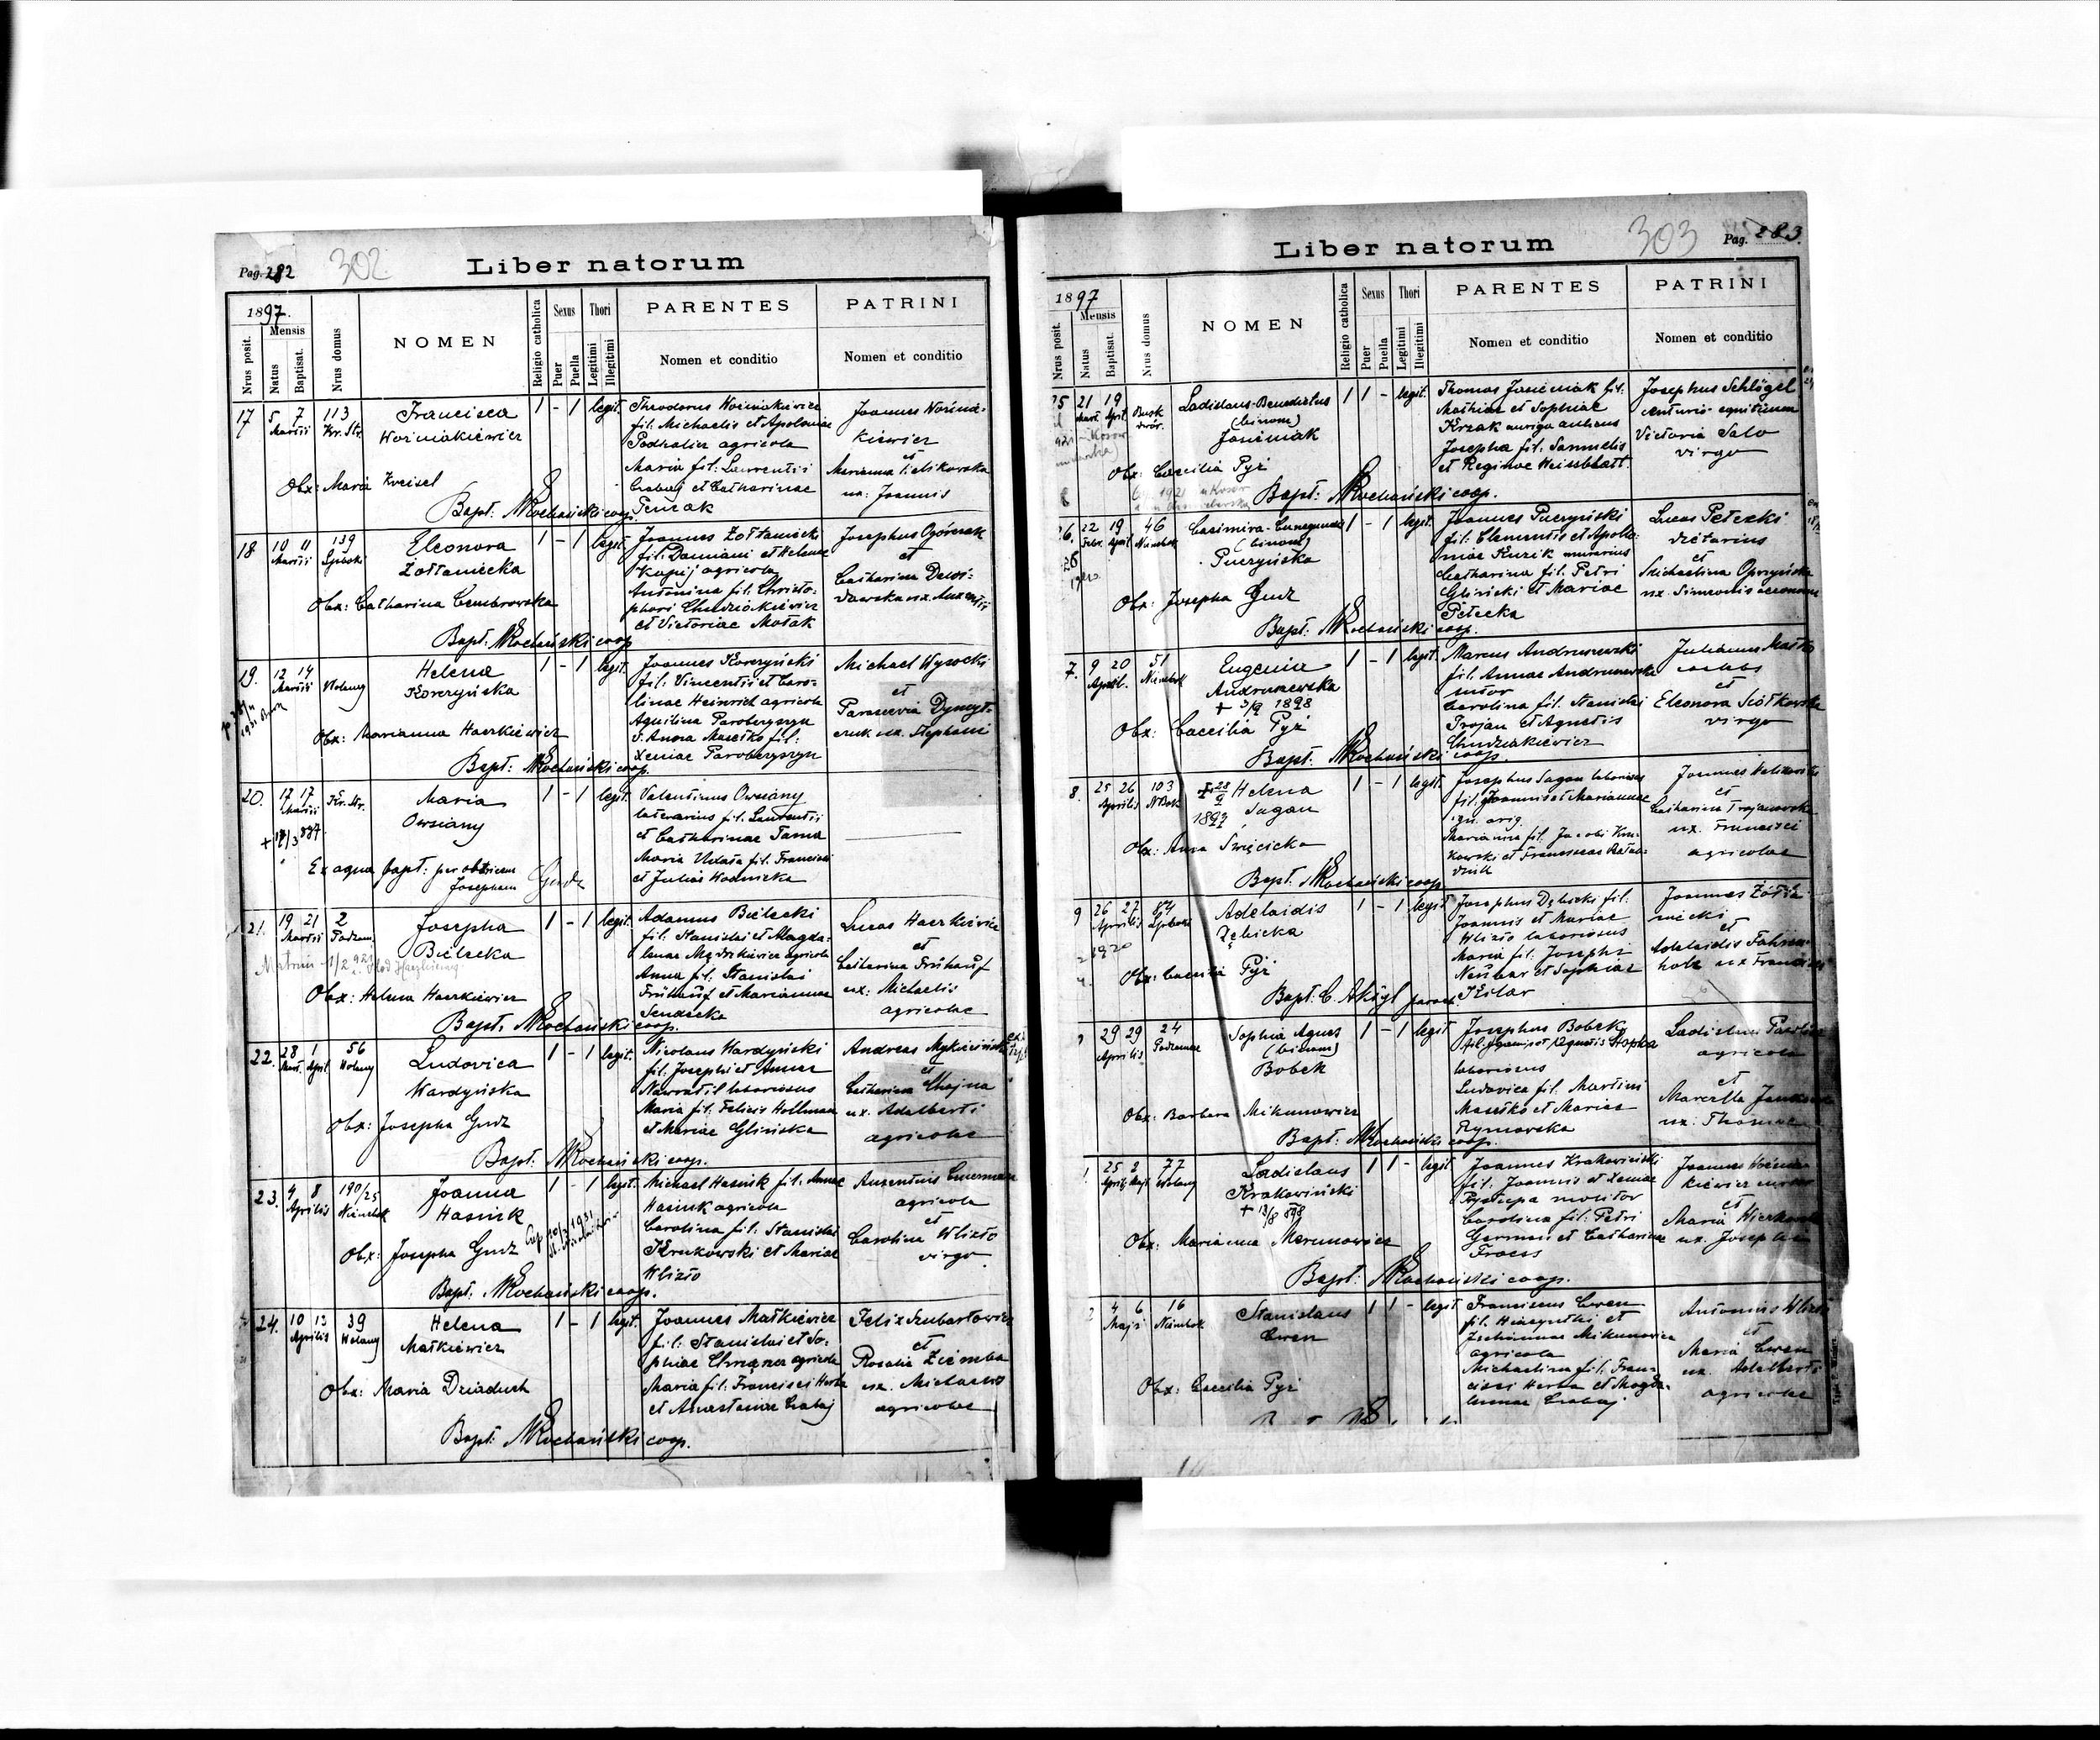 Pag. 282
302
Liber natorum
1897.
Nrus posit.
Mensis
Natus
Baptisat.
Nrus domus
NOMEN
Religio catholica
Sexus
Puer
Puella
Thori
Legitimi
Illegitimi
PARENTES
Nomen et conditio
PATRINI
Nomen et conditio
17 5 7 Martii 113
Francisca
Woźniakiewicz
1 - 1 legit.
Theodorus Woźniakiewicz
fil. Michaelis et Apoloniae
Podhalicz agricola
Maria fil: Laurentii
Grabaj et Catharinae
Pencak
Joannes Woźnia-
kiewicz
et
Marianna
ux: Joannis
Obx: Maria Kreisel
Bapt: Kochański coop.
18 10 11 Martii 139
Eleonora
Żółtaniecka
1 - 1 legit.
Joannes Żółtaniecki
fil: Damiani et Helenae
Kopij agricola
Antonina fil. Christo-
phori Chudziokiewicz
et Victoriae Motak
Josephus Ogórczak
et
Catharina
Obx: Catharina Cembrowska
Bapt: Kochański coop
19. 12 14 Martii Wolany
Helena
Korczyńska
1 - 1 legit.
Joannes Korczyński
fil: Vincentii et Caro-
linae Heinrich agricola
Aquilina Paroberyszyn
Xeniae Paroberyszyn
Michael Wysocki
et
Parascevia
ux. Stephani
Obx: Marianna Haczkiewicz
Bapt: Kochański coop.
20. 17 17 Martii
Maria
Owsiany
1 - 1 legit.
Valentinus Owsiany
laterarius fil. Laurentii
et Catharinae Tama
Maria fil. Francisci
et Julia Wodnicka
Ex aqua bapt: per obstricem
Josepham Gudz
21. 19 21 Martii 2 Podzam.
Josepha
Bielecka
1 - 1 legit.
Adamus Bielecki
fil. Stanislai et Magda-
lenae agricola
Anna fil. Stanislai
Frühauf et Mariannae
Sendecka
Lucas Haczkiewicz
et
Catharina Frühauf
ux: Michaelis
agricolae
Obx: Helena Haczkiewicz
Bapt. Kochański coop.
22. 28 1 Mart. April 56 Wolany
Ludovica
Wardyńska
1 - 1 legit.
Nicolaus Wardyński
fil: Josephi et Annae
Nawratil laboriosus
Maria fil: Felicis Hollman
et Mariae Glińska
Andreas
et
Catharina Chajna
ux. Adalberti
agricolae
Obx: Josepha Gudz
Bapt: Kochański coop.
23. 4 8 Aprilis 190/25
Joanna
Hasiuk
1 - 1 legit.
Michael Hasiuk fil. Annae
Hasiuk agricola
Carolina fil. Stanislai
Krukowski et Mariae
Wlizło
Auxentius
agricola
et
Carolina Wlizło
virgo
Obx: Josepha Gudz
Bapt: Kochański coop.
24. 10 13 Aprilis 39 Wolany
Helena
Małkiewicz
1 - 1 legit.
Joannes Małkiewicz
fil: Stanislai et So-
phiae agricola
Maria fil: Francisci Herba
et Anastasiae Grabaj
Felix Szubartowicz
et
Rosalia Ziemba
ux. Michaelis
agricolae
Obx: Maria Dziaduch
Bapt: Kochański coop.
Liber natorum
303
Pag. 283.
1897
Nrus posit.
Mensis
Natus
Baptisat.
Nrus domus
NOMEN
Religio catholica
Sexus
Puer
Puella
Thori
Legitimi
Illegitimi
PARENTES
Nomen et conditio
PATRINI
Nomen et conditio
5 21 19 Mart. April. Busk dwór.
Ladislaus-Benedictus
(binom)
Jasieniak
1 1 - legit.
Thomas Jasieniak fil:
Mathiae et Sophiae
Krzak auriga aulicus
Josepha fil. Samuelis
et Reginae Weissblatt.
Josephus Schlögel
Victoria Salo
virgo
Obx: Caecilia Pyż
Bapt: Kochański coop.
6. 22 19 Febr. April 46
Casimira-Cunegunda
(binom)
Puczyńska
1 - 1 legit.
Joannes Puczyński
fil: Clementis et Apollo-
niae Kuzik murarius
Catharina fil. Petri
Gliński et Mariae
Petecka
Lucas Petecki
et
Michaelina
Obx: Josepha Gudz
Bapt: Kochański coop.
7. 9 20 April. 51
Eugenia
Andruszewska
+ 3/9 1898
1 - 1 legit.
Marcus Andruszewski
fil. Annae Andruszewska
Carolina fil. Stanislai
Trojan et Agnetis
Chudziakiewicz
Julianus Matło
caelebs
et
Eleonora Siółkowska
virgo
Obx: Caecilia Pyż
Bapt. Kochański coop.
8. 25 26 Aprilis 103
Helena
Sagan
1 - 1 legit.
Josephus Sagan laboriosus
fil. Joannis et Mariannae
Marianna fil. Jacobi Kru-
kowski et Franciscae
Joannes
et
Catharina Trojanowska
ux. Francisci
agricolae
Obx: Anna Święcicka
Bapt. Kochański coop
9 26 27 Aprilis 84
Adelaidis
Zębicka
1 - 1 legit
Josephus Dębicki fil:
Joannis et Mariae
Wlizło laboriosus
Maria fil. Josephi
Neubar et Sophiae
Kitlar
Joannes
et
Adelaidis
ux Francisci
Obx: Caecilia Pyż
Bapt: C. paroch.
29 29 Aprilis 24 Podzamcze
Sophia Agnes
(binom)
Bobek
1 - 1 legit
Josephus Bobek
fil. Joannis et Agnetis Stopka
laboriosus
Ludovica fil. Martini
Masełko et Mariae
Rymarska
Ladislaus
agricola
et
Marcella
ux. Thomae
Obx: Barbara Mikunowicz
Bapt: Kochański coop.
25 2 Aprilis Maji 77 Wolany
Ladislaus
Krakowiński
+ 13/8 898
1 1 - legit
Joannes Krakowiński
fil. Joannis et Xeniae
Przystupa molitor
Carolina fil: Petri
German et Catharinae
Froess
Joannes Woźnia-
kiewicz
et
Maria
ux. Josephi
Obx: Marianna Merunowicz
Bapt: Kochański coop.
4 6 Maji 16
Stanislaus
Cwen
1 1 - legit
Franciscus Cwen
fil. Hiacynthi et
Mikunowicz
agricola
Michaelina fil. Fran-
cisci Herba et Magda-
lenae Grabaj
Antonius
et
Maria Cwen
ux. Adalberti
agricolae
Obx: Caecilia Pyż